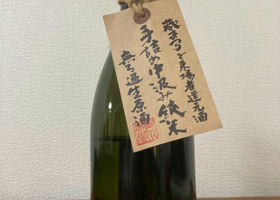 蔵まつりご来場者還元酒
手詰め中汲み純米
無ろ過生原酒